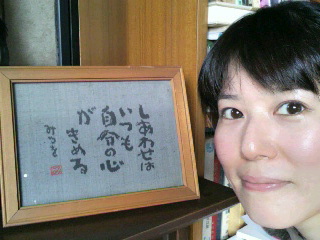 しあわせは
いつも
自分の心
がきめる
みつを